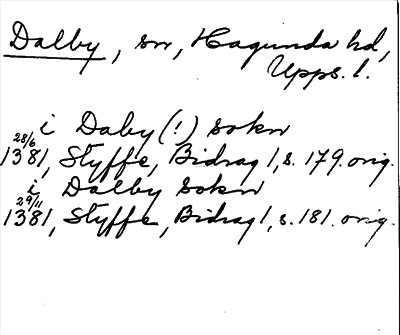 Dalby, sn, Hagunda hd,
Upps. l.
i Daby (!) sokn
28/6 1381, Styffe, Bidrag 1, s. 179. orig.
i Dalby sokn
29/11 1381, Styffe, Bidrag 1, s. 181. orig.